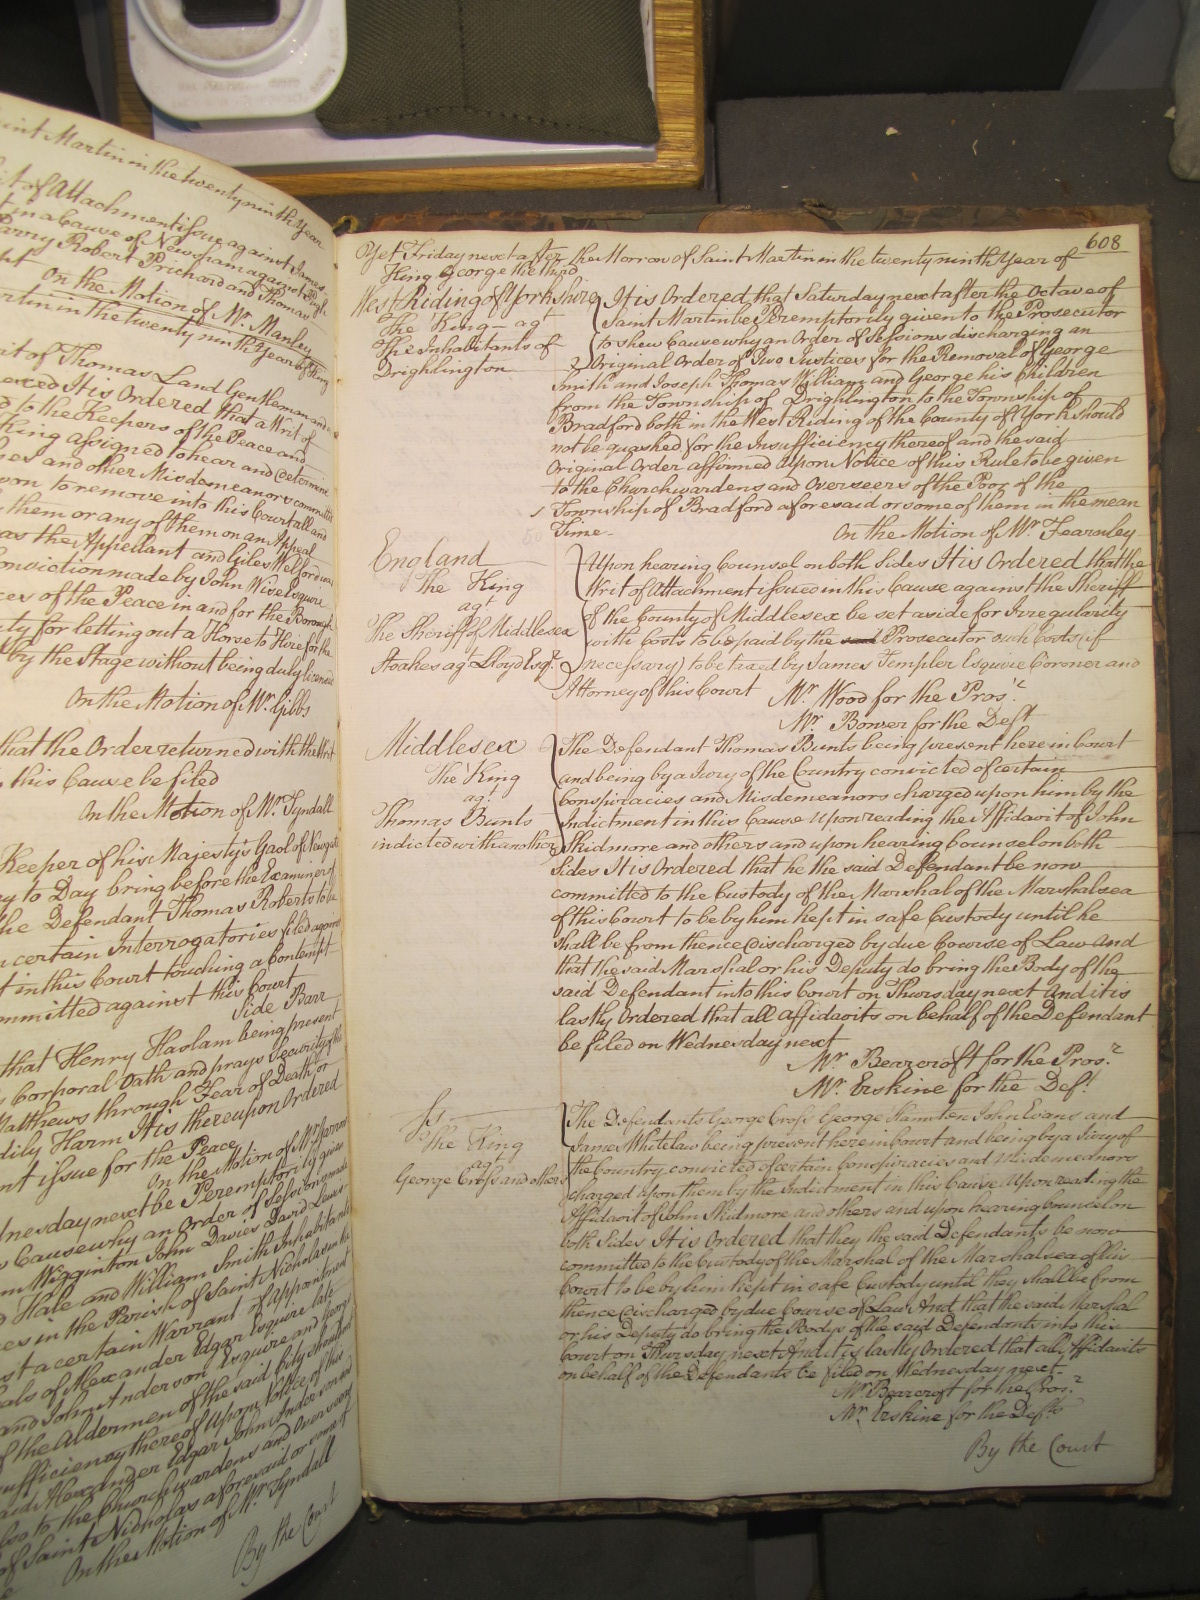 Saint Martin in the twenty ninth Year
it of Attachment issue against James
t in a Cause of Newsham against Hugh
arry Robert Prichard and Thomas
On the Motion of Mr. Manley
rtin in the twenty ninth Year of King
it of Thomas Land Gentleman and
erced It is Ordered that a Writ of
d to the Keepers of the Peace and
King assigned to hear and determine
es and other Misdemeanors committed
von to remove into this Court all and
them or any of them on an Appeal
as the Appellant and Giles Welford was
onviction made by John Wise Esquire
ces of the Peace in and for the Borough
ty for letting out a Horse to Hire for the
by the Stage without being duly licensed
On the Motion of Mr. Gibbs
that the Order returned with the Writ
this Cause be filed
On the Motion of Mr. Tyndall
Keeper of his Majesty's Gaol of Newgate
ay to Day bring before the Examiner of
the Defendant Thomas Roberts to be
n certain Interrogatories filed against
t in this Court touching a Contempt
ommitted against this Court
Side Barr
that Henry Haslam being present
s Corporal Oath and prays Security of the
Matthews through Fear of Death or
dily Harm It is thereupon Ordered
nt issue for the Peace
On the Motion of Mr. Garrow
dnesday next be Peremptorily given
s Cause why an Order of Sessions made
m Wigginton John Davies David Lewis
d Hale and William Smith Inhabitants
ces in the Parish of Saint Nicholas in the
st a certain Warrant of Appointment
eals of Alexander Edgar Esquire late
and John Anderson Esquire and George
of the Aldermen of the said City should not
sufficiency thereof Upon Notice of this
said Alexander Edgar John Anderson and
also to the Churchwardens and Overseers
of Saint Nicholas aforesaid or some of
On the Motion of Mr. Tyndall
By the Court
608
Yet Friday next after the Morrow of Saint Martin in the twenty ninth Year of
King George the third
West Riding of Yorkshire
The King agt
The Inhabitants of
Drighlington
It is Ordered that Saturday next after the Octave of
Saint Martin be Peremptorily given to the Prosecutor
to shew Cause why an Order of Sessions discharging an
Original Order of Two Justices for the Removal of George
Smith and Joseph Thomas William and George his Children
from the Township of Drighlington to the Township of
Bradford both in the West Riding of the County of York should
not be quashed for the Insufficiency thereof and the said
Original Order affirmed Upon Notice of this Rule to be given
to the Churchwardens and Overseers of the Poor of the
Township of Bradford aforesaid or some of them in the mean
Time
On the Motion of Mr. Fearnley
England
The King
agt
The Sheriff of Middlesex
Stoakes agt Lloyd Esqr.
Upon hearing Counsel on both Sides It is Ordered that the
Writ of Attachment issued in this Cause against the Sheriff
of the County of Middlesex be set aside for Irregularity
with Costs to be paid by the said Prosecutor such Costs (if
necessary) to be taxed by James Templer Esquire Coroner and
Attorney of this Court
Mr. Wood for the Prosr.
Mr. Bower for the Deft
Middlesex
The King
agt
Thomas Bunts
indicted with another
The Defendant Thomas Bunts being present here in Court
and being by a Jury of the Country convicted of certain
Conspiracies and Misdemeanors charged upon him by the
Indictment in this Cause Upon reading the Affidavit of John
Skidmore and others and upon hearing Counsel on both
Sides It is Ordered that he the said Defendant be now
committed to the Custody of the Marshal of the Marshalsea
of this Court to be by him kept in safe Custody until he
shall be from thence discharged by due Course of Law And
that the said Marshal or his Deputy do bring the Body of the
said Defendant into this Court on Thursday next And it is
lastly Ordered that all Affidavits on behalf of the Defendant
be filed on Wednesday next
Mr. Bearcroft for the Prosr.
Mr. Erskine for the Deft.
Ss
The King
agt
George Cross and others
The Defendants George Cross George Hamilton John Evans and
James Whitelaw being present here in Court and being by a Jury of
the Country convicted of certain Conspiracies and Misdemeanors
charged upon them by the Indictment in this Cause Upon reading the
Affidavit of John Skidmore and others and upon hearing Counsel on
both Sides It is Ordered that they the said Defendants be now
committed to the Custody of the Marshal of the Marshalsea of this
Court to be by him kept in safe Custody until they shall be from
thence discharged by due Course of Law And that the said Marshal
or his Deputy do bring the Bodys of the said Defendants into this
Court on Thursday next And it is lastly Ordered that all Affidavits
on behalf of the Defendants be filed on Wednesday next
Mr. Bearcroft for the Prosr.
Mr. Erskine for the Defts
By the Court